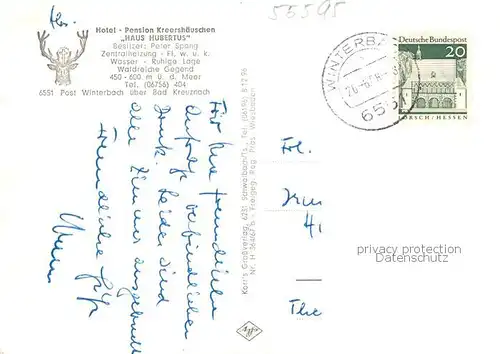 55595
Hotel - Pension Kreershäuschen
„HAUS HUBERTUS"
Besitzer: Peter Spang
Zentralheizung - Fl. w. u. k.
Wasser - Ruhige Lage
Waldreiche Gegend
450 - 600 m ü. d. Meer
Tel. (06756) 404
6551 Post Winterbach über Bad Kreuznach
Für Ihre freundliche
Anfrage verbindlichen
Dank. Leider sind
alle Zimmer ausgebucht
Freundliche Grüße
Korr's Großverlag, 6231 Schwalbach/Ts., Tel. (06196)
Nr. H
Freigeg. Reg. - Präs. Wiesbaden
Agfa
WINTERBA
6551
Deutsche Bundespost
20
LORSCH/HESSEN
Frl.
privacy protection
Datenschutz